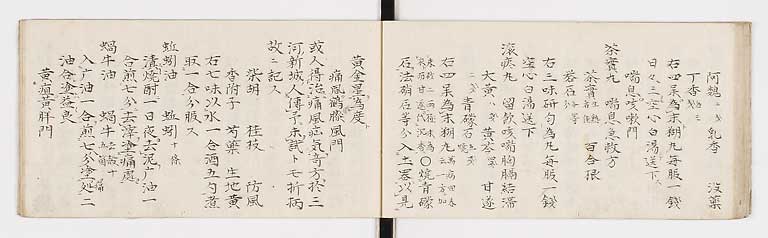 阿魏二匁 乳香 没薬
丁香各三匁
右四味為末糊丸毎服一銭
日々三空心白湯送下
喘息咳嗽門
茶蜜丸 喘息急救方
茶蜜 百合根
右三味研匀為丸毎服一銭
空心白湯送下
滚痰丸 留飲咳喘胸膈結滞
大黄 黄芩 甘遂
青礞石
右四味為末糊丸
〇焼青礞
石法硝石等分入土器以見
黄金星為度
痛風鶴膝風門
或人得治痛風疝気奇方於三
河新城人傳予未試ト モ折柄
故ニ記ス
柴胡 桂枝 防風
香附子 芍薬 生地黄
右七味以水一合酒五勺煮
取一合分服ス
蚯蚓油 蚯蚓十條
漬焼酎一日夜去泥广油一
合煎七分去滓塗痛處
蝸牛油 蝸牛
入广油一合煎七分塗 延ニ
油合塗益良
黄疸黄胖門